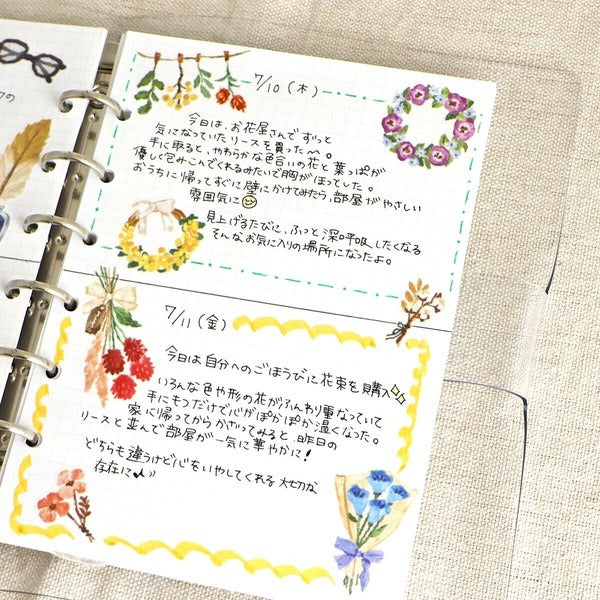 7/10 (木)
今日は、お花屋さんでずっと
気になっていたリースを買った〜。
手に取ると、やわらかな色合いの花と葉っぱが
優しく包みこんでくれるみたいで胸がほっとした。
おうちに帰ってすぐに壁にかけてみたら、部屋がやさしい
雰囲気に
見上げるたびに、ふっと深呼吸したくなる
そんなお気に入りの場所になったよ。
7/11 (金)
今日は自分へのごほうびに花束を購入
いろんな色や形の花がふんわり重なっていて
手にもつだけで心がぽかぽか温くなった。
家に帰ってからかざってみると、昨日の
リースと並んで部屋が一気に華やかに!
どちらも違うけど心をいやしてくれる大切な
存在に♪